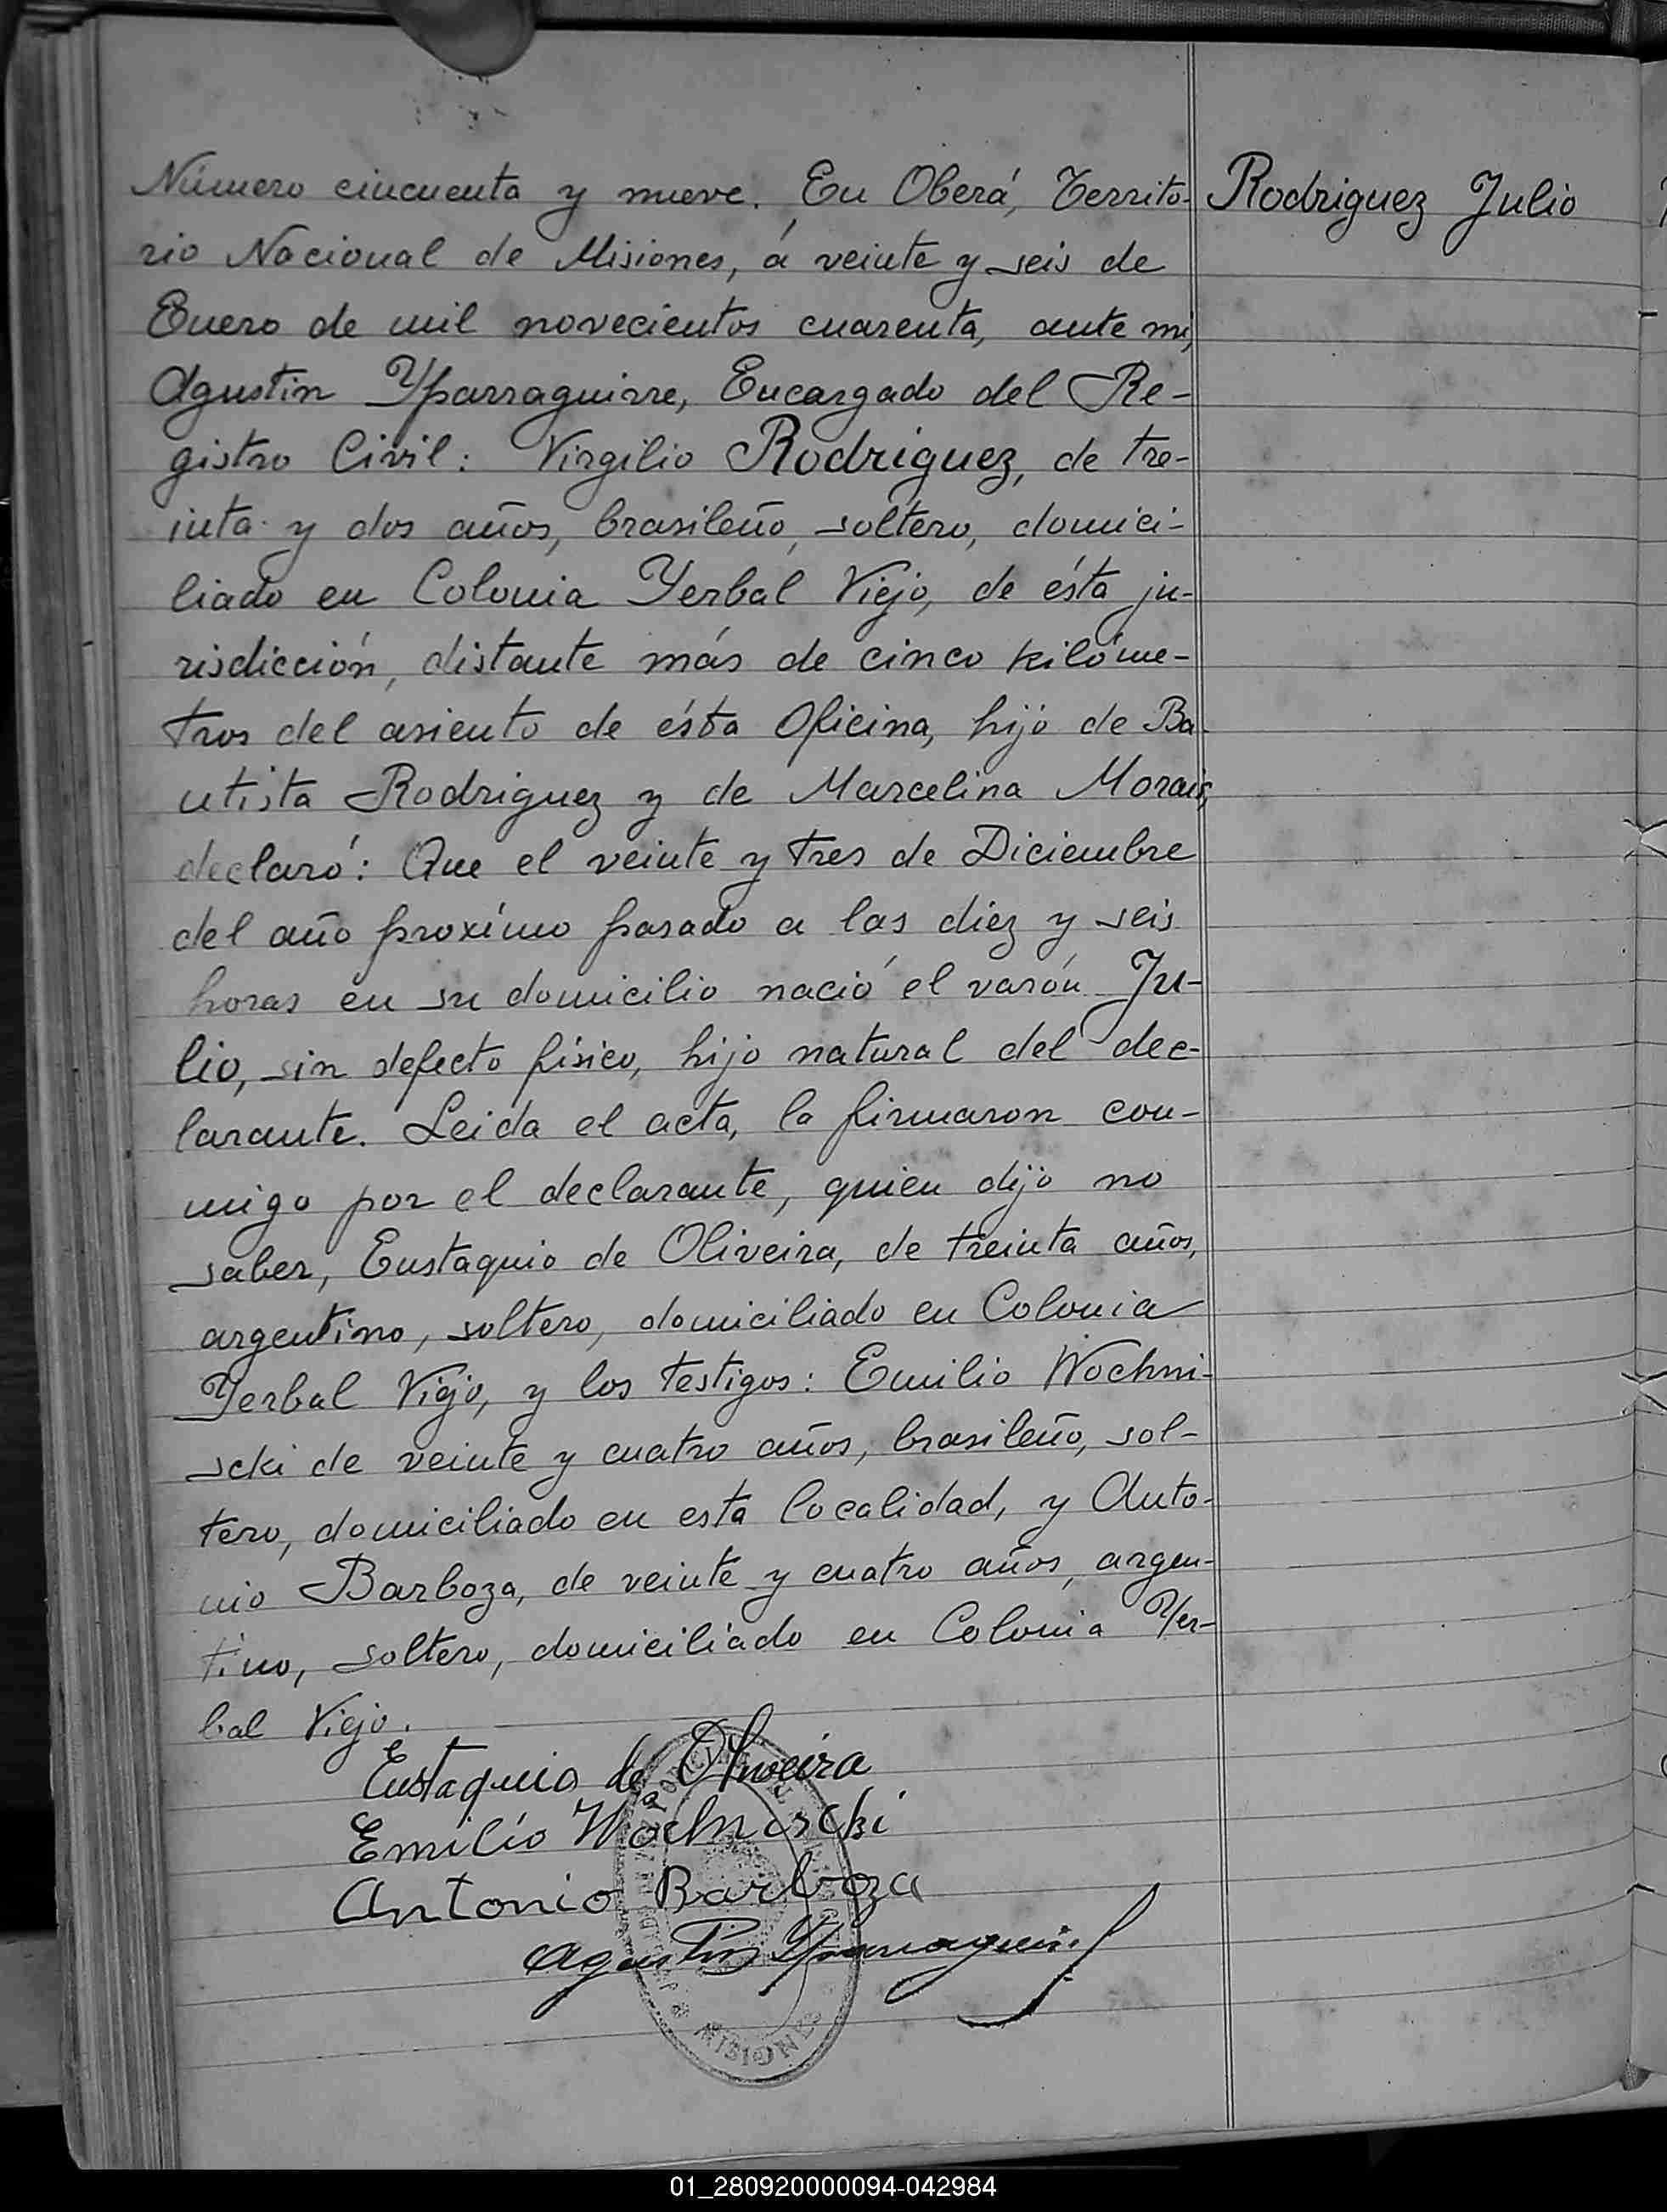 Número cincuenta y nueve. En Oberá, Territo-
rio Nacional de Misiones, á veinte y seis de
Enero de mil novecientos cuarenta, ante mi,
Agustin Yparraguirre, Encargado del Re-
gistro Civil: Virgilio Rodriguez, de tre-
inta y dos años, brasileño, soltero, domici-
liado en Colonia Yerbal Viejo, de ésta ju-
risdicción, distante más de cinco kilóme-
tros del asiento de ésta Oficina, hijo de Ba-
utista Rodriguez y de Marcelina Morais,
declaró: Que el veinte y tres de Diciembre
del año proximo pasado a las diez y seis
horas en su domicilio nació el varón Ju-
lio, sin defecto físico, hijo natural del dec-
larante. Leida el acta, la firmaron con-
migo por el declarante, quien dijo no
saber, Eustaquio de Oliveira, de treinta años,
argentino, soltero, domiciliado en Colonia
Yerbal Viejo, y los testigos: Emilio Wochni-
scki de veinte y cuatro años, brasileño, sol-
tero, domiciliado en esta localidad, y Anto-
nio Barboza, de veinte y cuatro años, argen-
tino, soltero, domiciliado en Colonia Yer-
bal Viejo.
Rodriguez Julio
Eustaquio de Oliveira
Emilio Wochniscki
Antonio Barboza
Agustin Yparraguirre
MISIONES
01_280920000094-042984